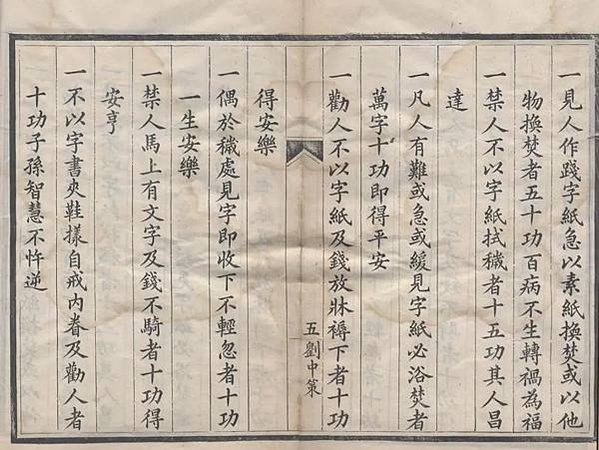 一見人作踐字紙急以素紙換焚或以他
物換焚者五十功百病不生轉禍為福
一禁人不以字紙拭穢者十五功其人昌
達
一凡人有難或急或緩見字紙必浴焚者
萬字十功即得平安
一勸人不以字紙及錢放牀褥下者十功
五劉中策
得安樂
一偶於穢處見字即收下不輕忽者十功
一生安樂
一禁人馬上有文字及錢不騎者十功得
安亨
一不以字書夾鞋樣自戒內眷及勸人者
十功子孫智慧不忤逆